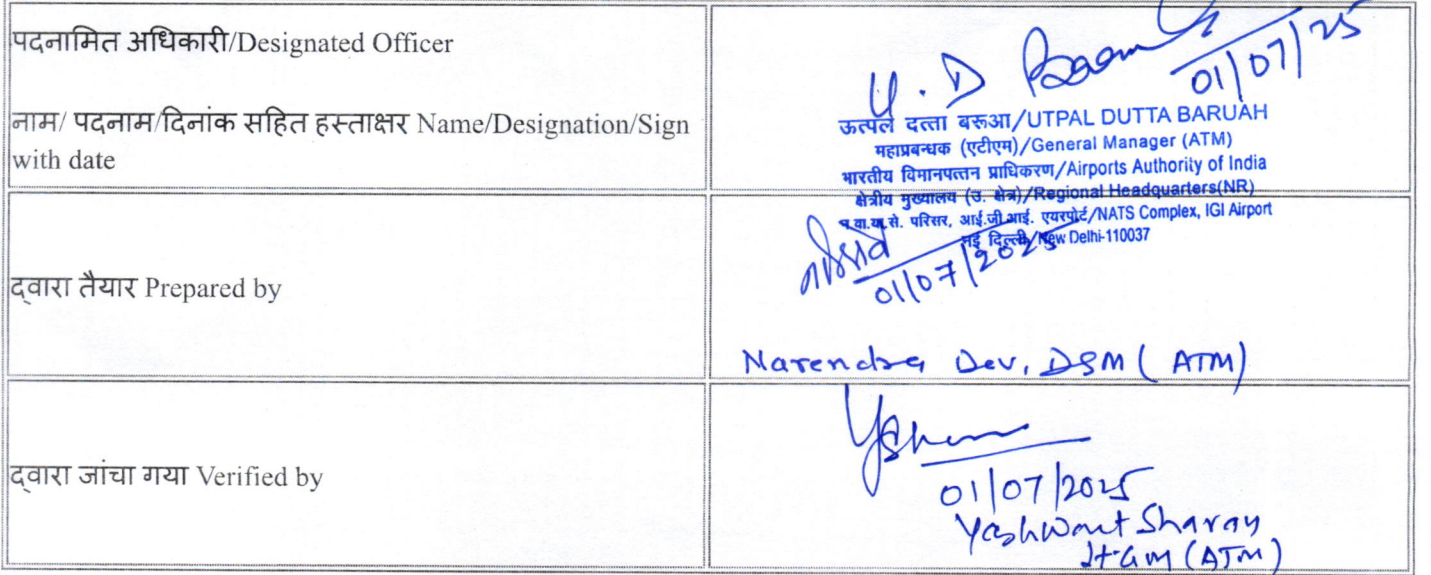 पदनामित अधिकारी/Designated Officer
नाम/ पदनाम/दिनांक सहित हस्ताक्षर Name/Designation/Sign
with date
U. D Baruah
01/07/25
ऊत्पल दत्ता बरूआ/UTPAL DUTTA BARUAH
महाप्रबन्धक (एटीएम)/General Manager (ATM)
भारतीय विमानपत्तन प्राधिकरण/Airports Authority of India
क्षेत्रीय मुख्यालय (उ. क्षेत्र)/Regional Headquarters(NR)
से. परिसर, आई.जी.आई. एयरपोर्ट/NATS Complex, IGI Airport
नई दिल्ली/New Delhi-110037
द्वारा तैयार Prepared by
01/07/2025
Narendra Dev, DGM (ATM)
द्वारा जांचा गया Verified by
01/07/2025
Yashwant Sharay
Jt GM (ATM)